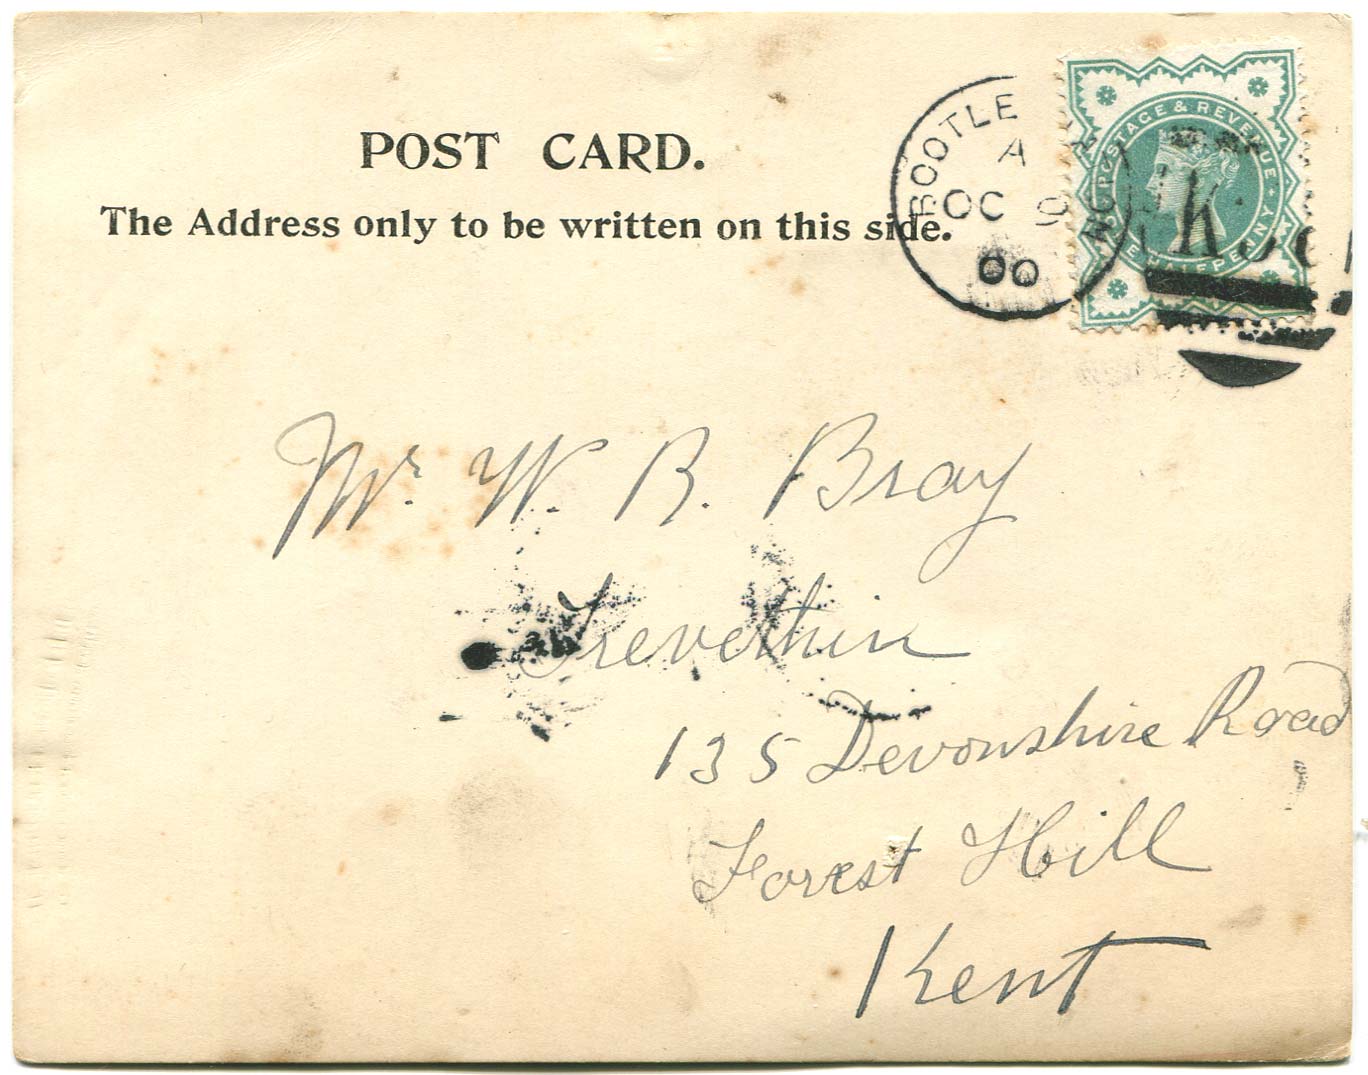 POST CARD.
The Address only to be written on this side.
BOOTLE
A
OC 9
00
POSTAGE & REVENUE
HALFPENNY
Mr. W. R. Bray
Trevethin
135 Devonshire Road
Forest Hill
Kent